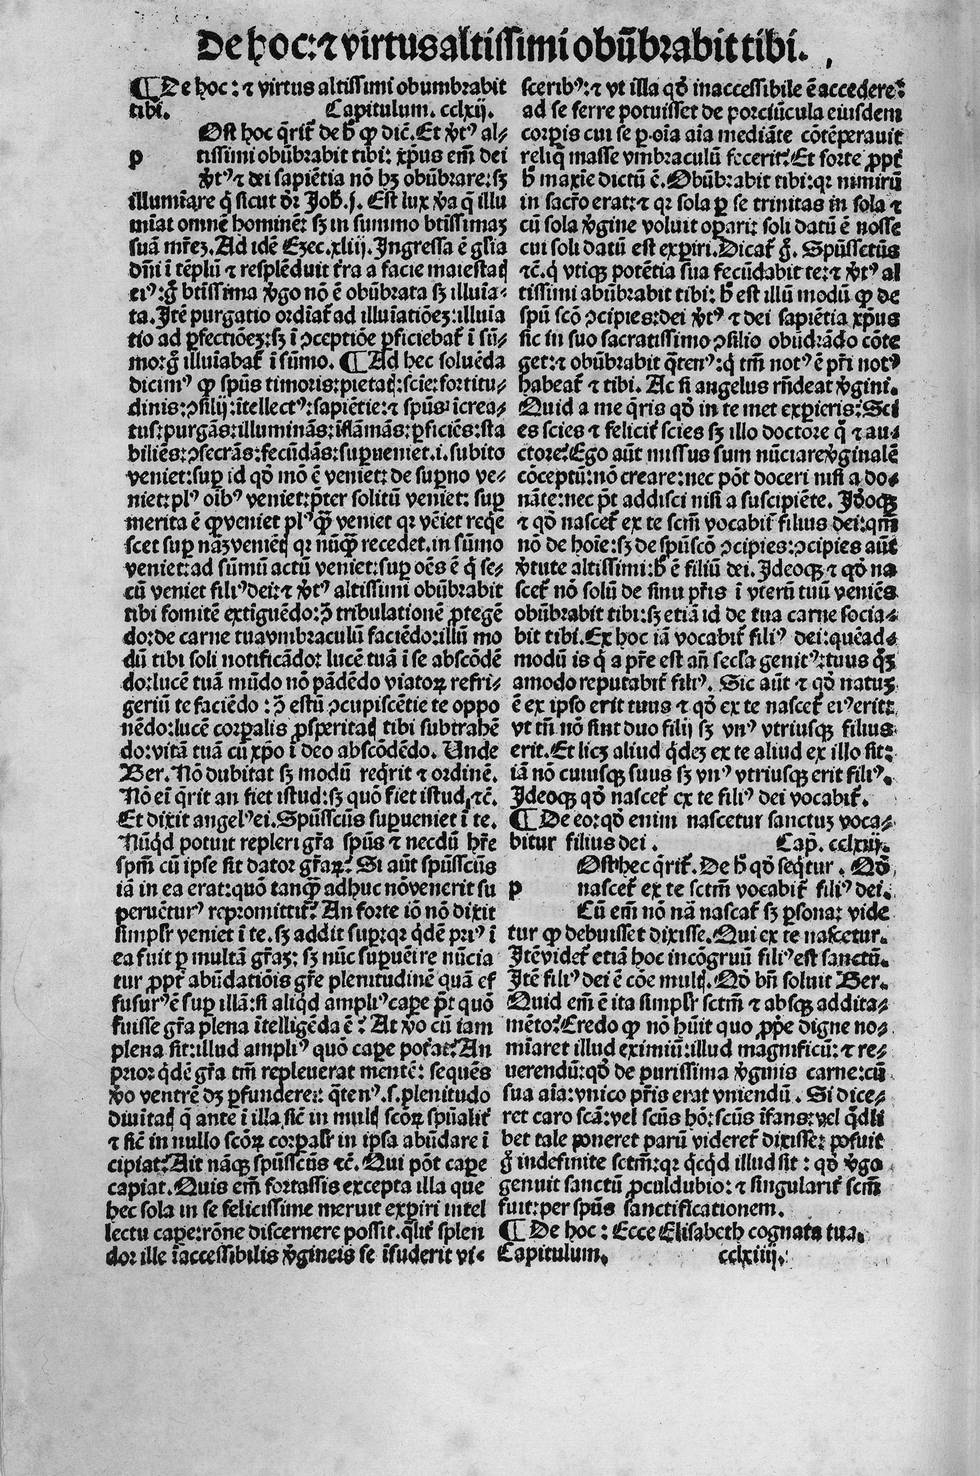 De hoc: ⁊ virtus altissimi obūbrabit tibi.
¶ De hoc: ⁊ virtus altissimi obumbrabit
tibi. Capitulum. cclxij.
p Ost hoc q̄rit᷑ de h̄ ꝙ dic̄. Et v̓tꝰ al-
tissimi obūbrabit tibi: xp̄us em̄ dei
v̓tꝰ ⁊ dei sapiētia nō hꝫ obūbrare: sꝫ
illumīare q̓ sicut dr̄ Joh̄. j. Est lux v̓a q̓ illu
mīat omnē hominē: sꝫ in summo btīssimaꝫ
suā mr̄eꝫ. Ad idē Ezec. xliij. Ingressa ē gl̄ia
dn̄i ī tēplū ⁊ resplēduit t̄ra a facie maiestatꝭ
eiꝰ: g̊ btīssima v̓go nō ē obūbrata sꝫ illuīa-
ta. Itē purgatio ordīat᷑ ad illuīatiōeꝫ: illuīa
tio ad ꝑfectiōeꝫ: sꝫ ī ꝯceptiōe ꝑficiebat᷑ ī sū-
mo: g̊ illuīabat᷑ ī sūmo. ¶ Ad hec soluēda
dicimꝰ ꝙ spūs timoris: pietatꝭ: scīe: fortitu-
dinis: ꝯsilij: ītellectꝰ: sapiētie: ⁊ spūs īcrea-
tus: purgās: illuminās: īflāmās: ꝑficiēs: sta
biliēs: ꝯsecrās: fecūdās: suꝑueniet. i. subito
veniet: suꝑ id qd̓ mō ē veniet: de suꝑno ve-
niet: plꝰ oībꝰ veniet: p̄ter solitū veniet: suꝑ
merita ē ꝓveniet plꝰq̄ꝫ veniet qr vēiet reqͥe
scet suꝑ nāꝫ venietꝭ qr nūq̄ꝫ recedet. in sūmo
veniet: ad sūmū actū veniet: suꝑ oēs ē q̓ se-
cū veniet filiꝰ dei: ⁊ v̓tꝰ altissimi obūbrabit
tibi fomitē extīguēdo: ꝯ̄ tribulationē ꝓtegē
do: de carne tua vmbraculū faciēdo: illū mo
dū tibi soli notificādo: lucē tuā ī se abscōdē
do: lucē tuā mūdo nō pādēdo viatoꝝ refri-
geriū te faciēdo: ꝯ̄ estū ꝯcupiscētie te oppo
nēdo: lucē corꝑalis ꝓsꝑitatꝭ tibi subtrahē
do: vitā tuā cū xp̄o ī deo abscōdēdo. Unde
Ber. Nō dubitat sꝫ modū reqͥrit ⁊ ordinē.
Nō ei q̄rit an fiet istud: sꝫ quō fiet istud, ⁊c̄.
Et dixit angelꝰ ei. Spūsscūs suꝑueniet ī te.
Nūqͥd potuit repleri gr̄a spūs ⁊ necdū hr̄e
spm̄ cū ipse sit dator gr̄aꝝ? Si aūt spūsscūs
iā in ea erat: quō tanq̄ꝫ adhuc nō venerit su
ꝑuētur9 repromittit᷑? An forte iō nō dixit
simplr̄ veniet ī te. sꝫ addit suꝑ: qr qͥdē priꝰ ī
ea fuit ꝑ multā gr̄aꝫ: sꝫ nūc suꝑueīre nūcia
tur ꝓpt̓ abūdātiōis gr̄e plenitudinē quā ef
fusurꝰ ē suꝑ illā: si aliqͥd ampliꝰ caꝑe p̄t quō
fuisse gr̄a plena ītelligēda ē? At v̓o cū iam
plena sit: illud ampliꝰ quō caꝑe poterat? An
prior qͥdē gr̄a tm̄ repleuerat mentē: sequēs
v̓o ventrē dꝫ ꝑfundere: q̄tenꝰ. s. plenitudo
diuitatꝭ q̄ ante ī illa sīc̄ in multꝭ scōꝝ spūalit᷑
⁊ sīc̄ in nullo scōꝝ corꝑalr̄ in ipsa abūdare ī
cipiat? Ait nāqꝫ spūsscūs ⁊c̄. Qui pōt caꝑe
capiat. Quis em̄ fortassis excepta illa que
hec sola in se felicissime meruit exꝑiri intel
lectu caꝑe: rōne discernere possit. qͥlit᷑ splen
dor ille īaccessibilis v̓gineis se īfuderit vi-
sceribꝰ: ⁊ vt illa qd̓ inaccessibile ē accedere:
ad se ferre potuisset de porciūcula eiusdem
corꝑis cui se ꝑ oīa aīa mediāte cōtēꝑauit
reliq̄ masse vmbraculū fecerit? Et forte ꝓpt̓
h̄ maxīe dictū ē. Obūbrabit tibi: qr nimirū
in sacr̄o erat: ⁊ qr sola ꝑ se trinitas in sola ⁊
cū sola v̓gine voluit oꝑari: soli datū ē nosse
cui soli datū est exꝑiri. Dicat᷑ g̊. Spūssctūs
⁊c̄. q̓ vtiqꝫ potētia sua fecūdabit te: ⁊ v̓tꝰ al
tissimi abūbrabit tibi: h̄ est illū modū ꝙ de
spū scō ꝯcipies: dei v̓tꝰ ⁊ dei sapiētia xp̄us
sic in suo sacratissimo ꝯsilio obūdrādo cōte
get: ⁊ obūbrabit q̄tenꝰ: q̓ tm̄ notꝰ ē pr̄i notꝰ
habeat᷑ ⁊ tibi. Ac si angelus rn̄deat v̓gini.
Quid a me q̄ris qd̓ in te met exꝑieris: Sci
es scies ⁊ felicit᷑ scies sꝫ illo doctore q̓ ⁊ au-
ctore: Ego aūt missus sum nūciare v̓ginalē
cōceptū: nō creare: nec pōt doceri nisi a do-
nāte: nec p̄t addisci nisi a suscipiēte. Jdeoqꝫ
⁊ qd̓ nascet᷑ ex te scm̄ vocabit᷑ filius dei: qm̄
nō de hoīe: sꝫ de spūscō ꝯcipies: ꝯcipies aūt
v̓tute altissimi: h̄ ē filiū dei. Jdeoqꝫ ⁊ qd̓ na
scet᷑ nō solū de sinu pr̄is ī vterū tuū veniēs
obūbrabit tibi: sꝫ etiā id de tua carne socia-
bit tibi. Ex hoc iā vocabit᷑ filiꝰ dei: quēad-
modū is q̓ a pr̄e est an̄ secl̄a genitꝰ: tuus q̊ꝫ
amodo reputabit᷑ filiꝰ. Sic aūt ⁊ qd̓ natuꝫ
ē ex ipso erit tuus ⁊ qd̓ ex te nascet᷑ eiꝰ erit:
vt tn̄ nō sint duo filij sꝫ vnꝰ vtriusqꝫ filius
erit. Et licꝫ aliud qͥdeꝫ ex te aliud ex illo sit:
iā nō cuiusqꝫ suus sꝫ vnꝰ vtriusqꝫ erit filiꝰ.
Jdeoqꝫ qd̓ nascet᷑ ex te filiꝰ dei vocabit᷑.
¶ De eo: qd̓ enim nascetur sanctuꝫ voca-
bitur filius dei. Cap. cclxiij.
p Osthec q̄rit᷑. De h̄ qd̓ seqͥtur. Qd̓
nascet᷑ ex te sctm̄ vocabit᷑ filiꝰ dei.
Cū em̄ nō nā nascat᷑ sꝫ ꝑsona: vide
tur ꝙ debuisset dixisse. Qui ex te nascetur.
Itē videt᷑ etiā hoc incōgruū filiꝰ est sanctū.
Itē filiꝰ dei ē cōe multꝭ. Qd̓ bn̄ soluit Ber.
Quid em̄ ē ita simplr̄ sctm̄ ⁊ absqꝫ addita-
mēto? Credo ꝙ nō hūit quo ꝓpͥe digne no-
mīaret illud eximiū: illud magnificū: ⁊ re-
uerendū: qd̓ de purissima v̓ginis carne: cū
sua aīa: vnico pr̄is erat vniendū. Si dice-
ret caro scā: vel scūs hō: scūs īfans: vel qͥdli
bet tale poneret parū videret᷑ dixisse: posuit
g̊ indefinite sctm̄: qr qͥcqͥd illud sit: qd̓ v̓go
genuit sanctū ꝓculdubio: ⁊ singularit᷑ scm̄
fuit: per spūs sanctificationem.
¶ De hoc: Ecce Elisabeth cognata tua.
Capitulum. cclxiiij.